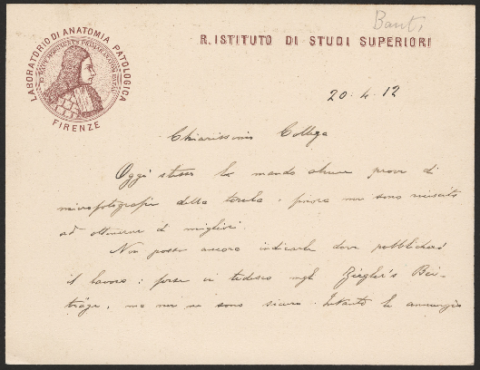 Banti
LABORATORIO DI ANATOMIA PATOLOGICA
FIRENZE
R. ISTITUTO DI STUDI SUPERIORI
20.4.12
Chiarissimo Collega
Oggi stesso Le mando alcune prove di
microfotografie della milza; finora non sono riuscito
ad ottenerne di migliori.
Non posso ancora indicarle dove pubblicherò
il lavoro: forse in tedesco negli Ziegler's Bei-
träge, ma non ne sono sicuro. Intanto le annunzio